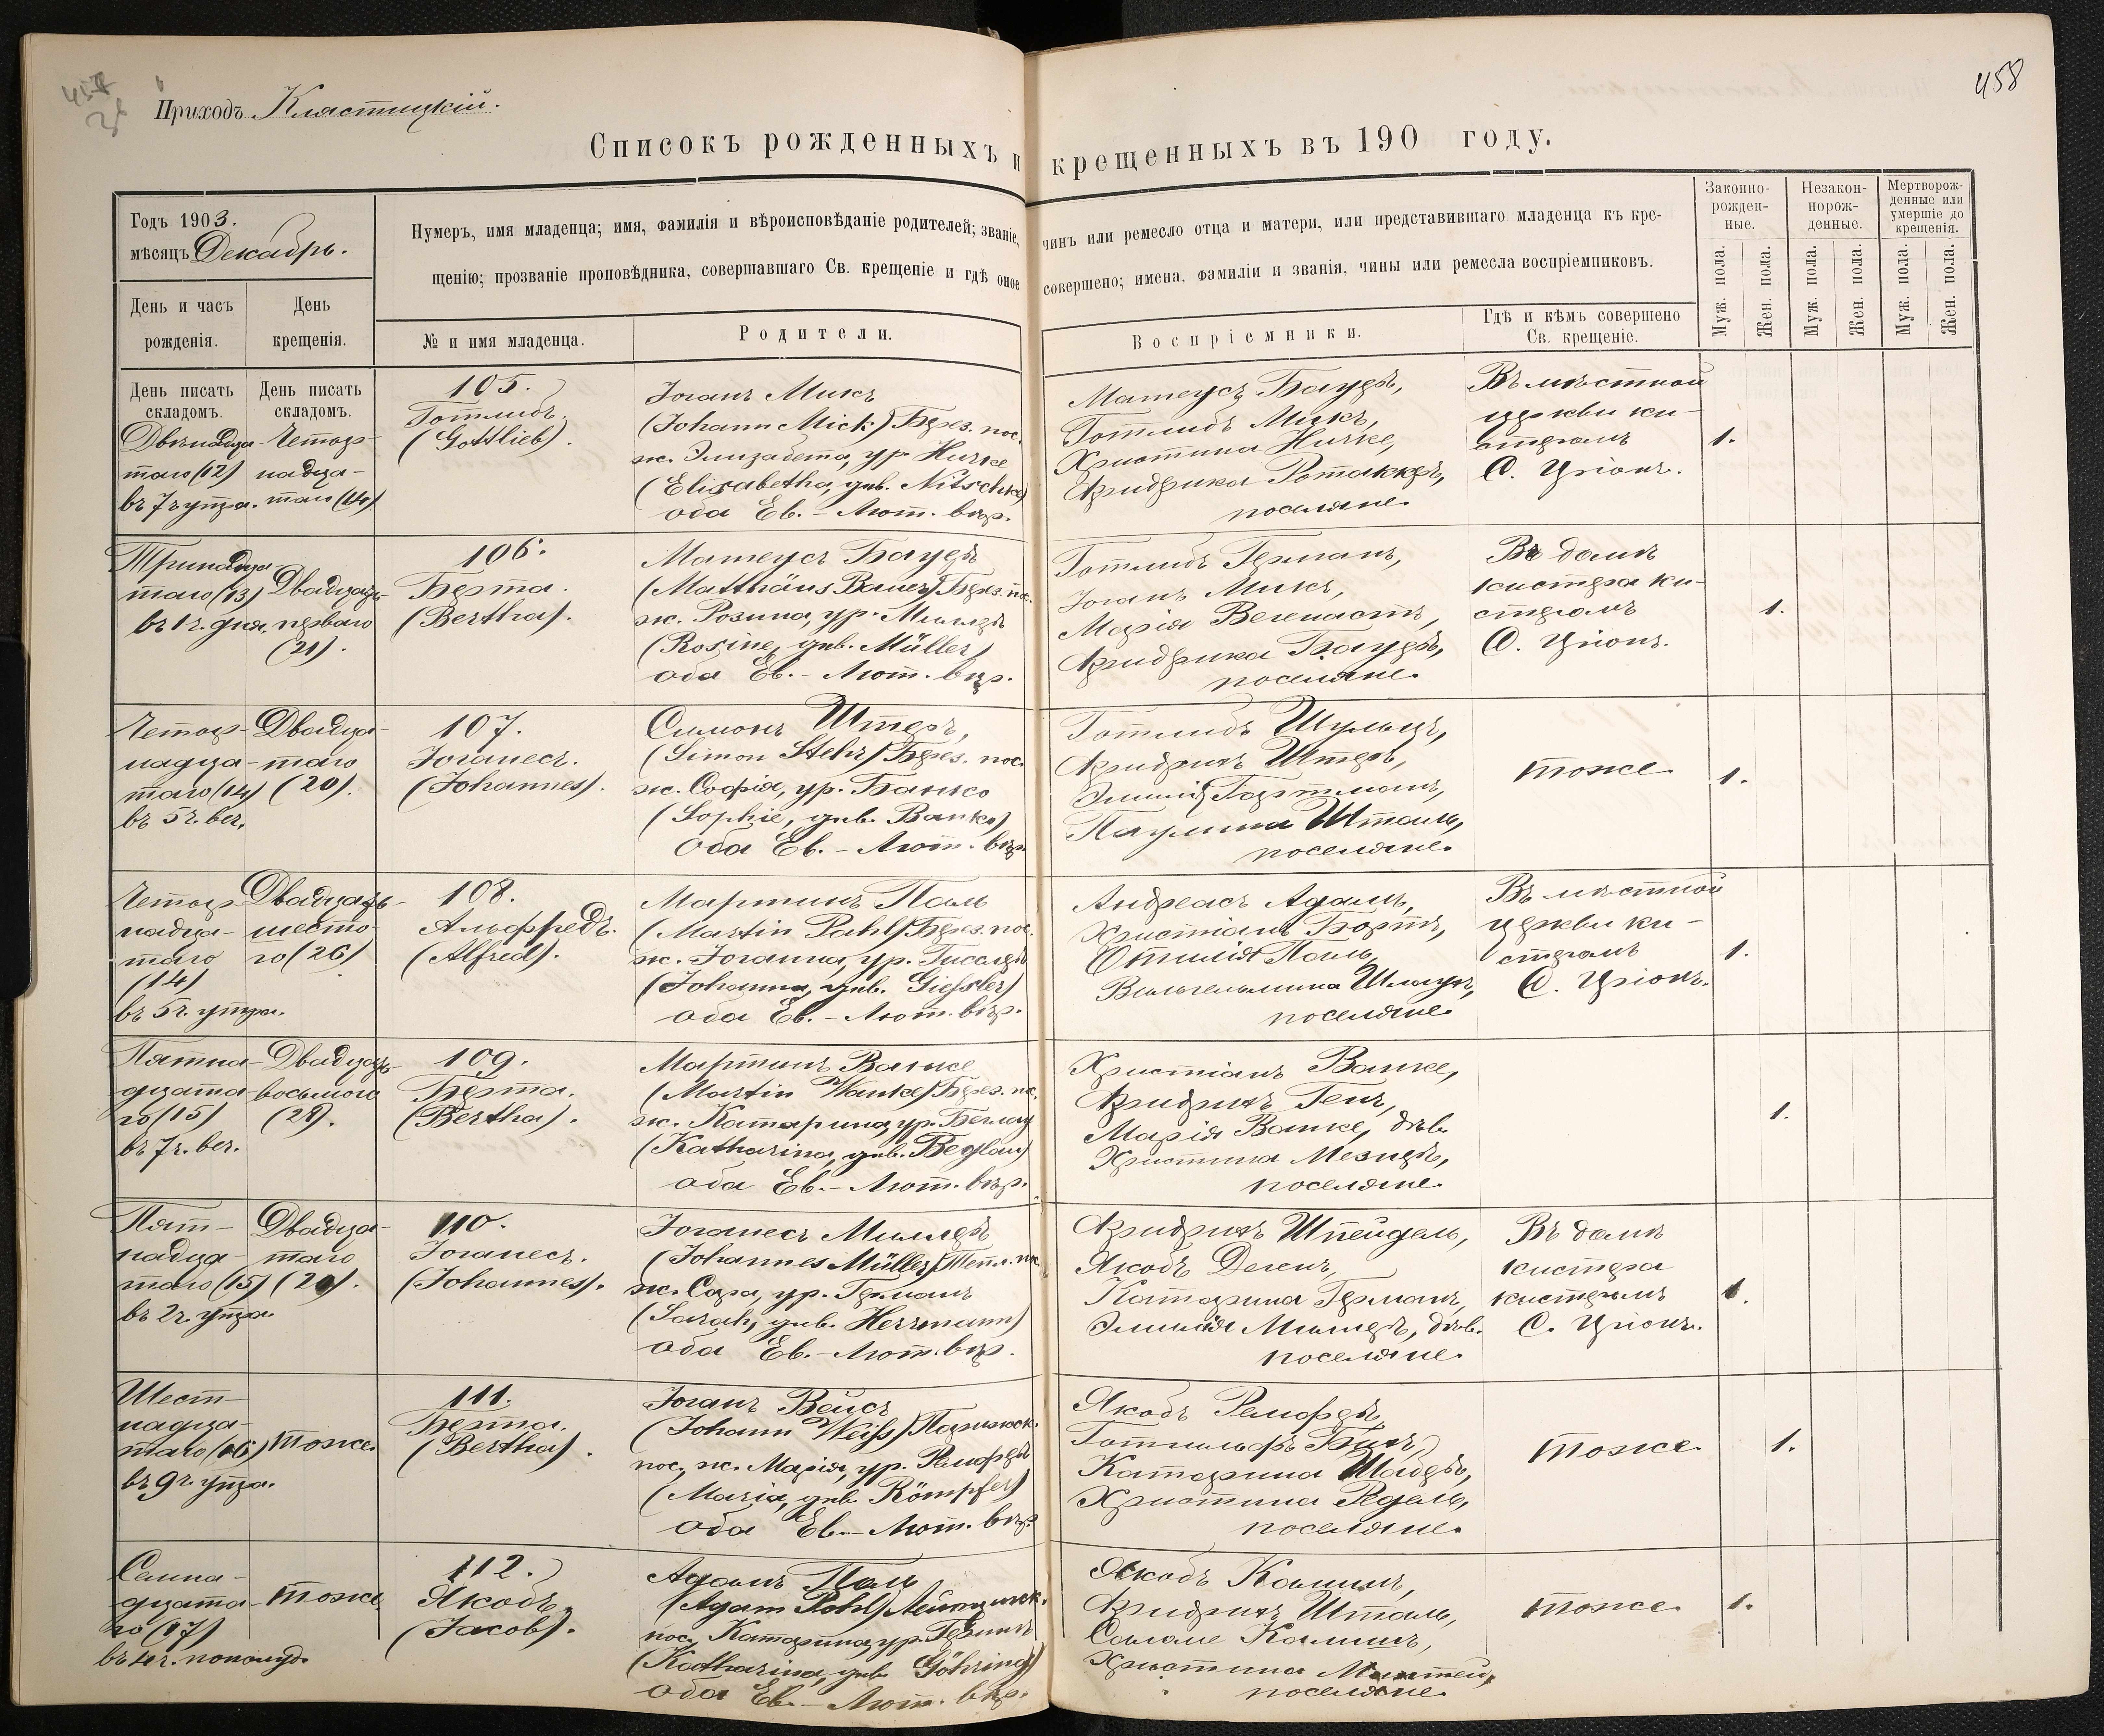 458
Приходъ Кластицкій.
Списокъ рожденныхъ и крещенныхъ въ 190 году.
Годъ 1903.
мѣсяцъ Декабрь.
День и часъ
рожденія.
День
крещенія.
Нумеръ, имя младенца; имя, фамилія и вѣроисповѣданіе родителей; званіе, чинъ или ремесло отца и матери, или представившаго младенца къ кре-
щенію; прозваніе проповѣдника, совершавшаго Св. крещеніе и гдѣ оное совершено; имена, фамиліи и званія, чины или ремесла воспріемниковъ.
№ и имя младенца.
Родители.
Воспріемники.
Гдѣ и кѣмъ совершено
Св. крещеніе.
Законно-
рожден-
ные.
Незакон-
норож-
денные.
Мертворож-
денные или
умершіе до
крещенія.
Муж. пола.
Жен. пола.
Муж. пола.
Жен. пола.
Муж. пола.
Жен. пола.
День писать
складомъ.
День писать
складомъ.
Двѣнадца-
таго (12)
въ 7 ч утра.
Четыр-
надца-
таго (14)
105.
Готлибъ.
(Gottlieb).
Іоганъ Микъ
(Johann Mick) Берез. пос.
ж. Элизабета, ур. Ничке
(Elisabetha, geb. Nitschke)
оба Ев. - Лют. вѣр.
Матеусъ Бауеръ,
Готлибъ Микъ,
Христина Ничке,
Фридрика Ротаккеръ,
поселяне.
Въ мѣстной
церкви ки-
стеромъ
С. Ціонъ.
1.
Тринадца-
таго (13)
въ 1 ч. дня.
Двадцать
перваго
(21).
106.
Берта.
(Bertha).
Матеусъ Бауеръ
(Matthäus Bauer) Берез. по.
ж. Розина, ур. Миллеръ
(Rosine, geb. Müller)
оба Ев. - Лют. вѣр.
Готлибъ Германъ,
Іоганъ Микъ,
Марія
Фридрика Бауеръ,
поселяне.
Въ домѣ
кистера ки-
стеромъ
С. Ціонъ.
1.
Четыр-
надца-
таго (14)
въ 5 ч. веч.
Двадца-
таго
(20).
107.
Іоганесъ.
(Johannes).
Симонъ Штеръ,
(Simon Stehr) Берез. пос.
ж. Софія, ур. Банко
(Sophie, geb. Banko)
Оба Ев. - Лют. вѣр.
Готлибъ Шульцъ,
Фридрихъ Штеръ,
Эмилія Гартманъ,
Паулина Шталь,
поселяне.
тоже
1.
Четыр-
надца-
таго
(14)
въ 5 ч. утра.
Двадцать-
шесто-
го (26)
108.
Альфредъ.
(Alfred).
Мартинъ Паль
(Martin Pahl) Берез. по.
ж. Іоганна, ур. Гисслеръ
(Johanna, geb. Giessler)
оба Ев. - Лют. вѣр.
Андреасъ Адамъ,
Христіанъ Бортъ,
Отилія Паль,
Вильгельмина
поселяне.
Въ мѣстной
церкви ки-
стеромъ
С. Ціонъ.
1.
Пятна-
дцата-
го (15)
въ 7 ч. веч.
Двадцать-
восьмого
(28).
109.
Берта.
(Bertha).
Мартинъ Ванке
(Martin Wanke) Берез. по.
ж. Катарина, ур. Беглау
(Katharina, geb. Beglau)
оба Ев. - Лют. вѣр.
Христіанъ Ванке,
Фридрихъ Генъ,
Марія Ванке, дѣв.
Христина Мезнеръ,
поселяне.
1.
Пят-
надца-
таго (15)
въ 2 ч. утра.
Двадца-
таго
(20).
110.
Іоганесъ.
(Johannes).
Іоганесъ Миллеръ
(Johannes Müller) Тепл. по.
ж. Сара, ур. Германъ
(Sarah, geb. Herrmann)
оба Ев. - Лют. вѣр.
Фридрихъ Шпейдель,
Якобъ
Катарина Германъ,
Эмилія Миллеръ, дѣв.
поселяне.
Въ домѣ
кистера
кистеромъ
С. Ціонъ.
1.
Шест-
надца-
таго (16)
въ 9 ч. утра.
тоже.
111.
Берта.
(Bertha).
Іоганъ Вейсъ
(Johann Weiss) Парижск.
пос., ж. Марія, ур. Ремпферъ
(Maria, geb. Römpfer)
оба Ев. - Лют. вѣр.
Якобъ Ремпферъ,
Готгильфъ
Катарина Шаберъ,
Христина Редель,
поселяне.
тоже.
1.
Семна-
дцата-
го (17)
въ 4 ч. пополуд.
тоже
112.
Якобъ.
(Jacob).
Адамъ Поль
(Adam Pohl) Лейпцигск.
пос. Катарина, ур. Герингъ
(Katharina, geb. Göhring)
оба Ев. - Лют. вѣр.
Якобъ Кальмъ,
Фридрихъ Шталь,
Саломе
Христина
поселяне.
тоже.
1.